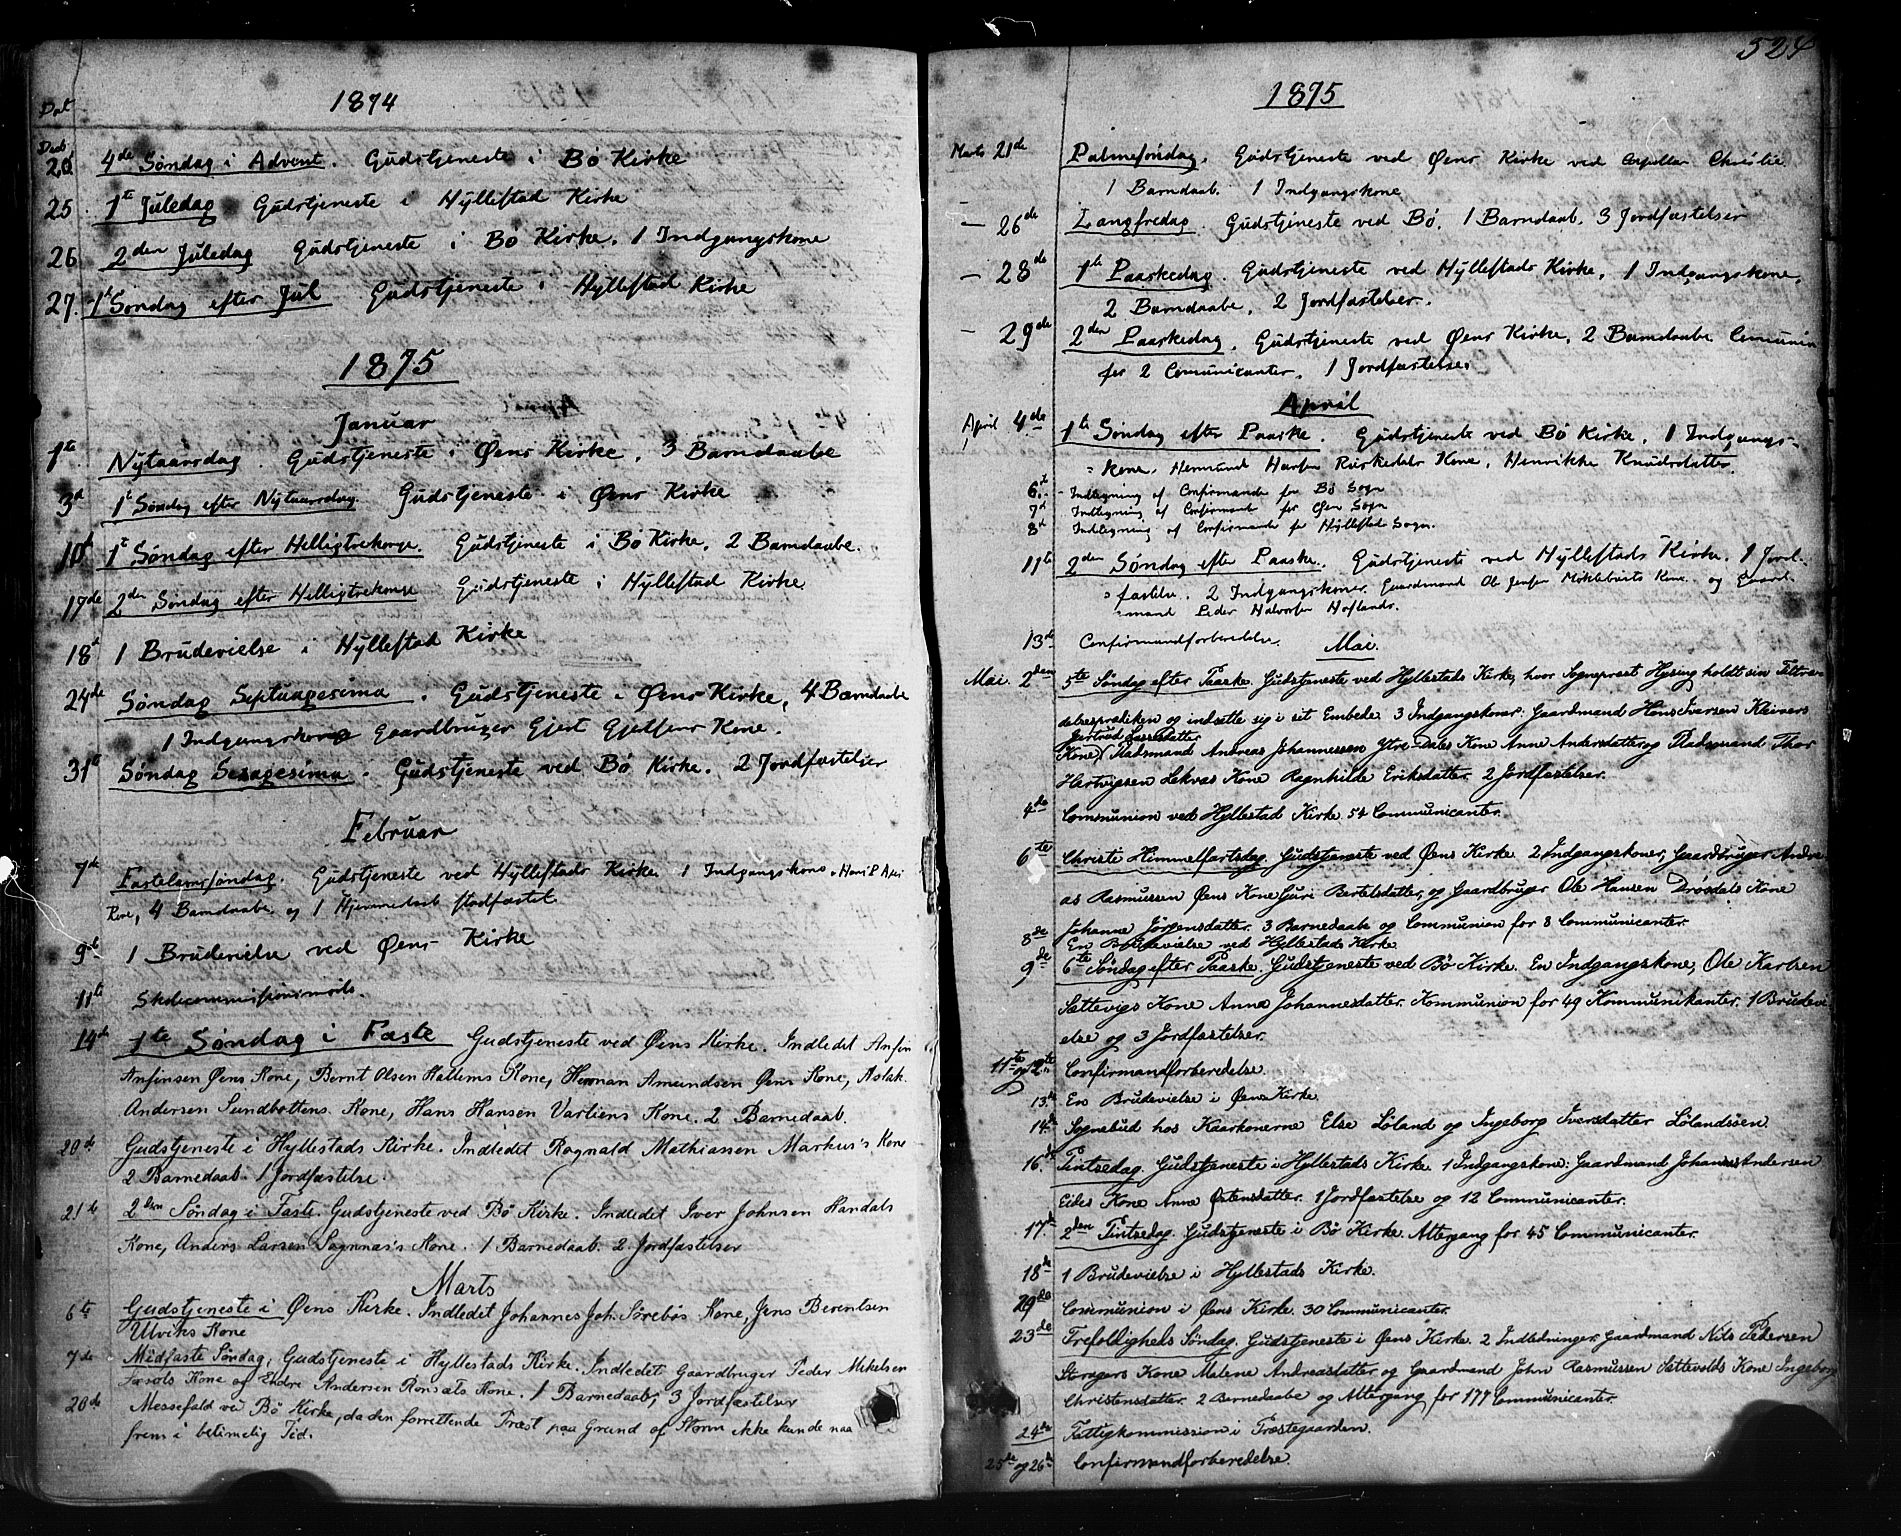 Dat
1874
Decb.
20 4de Søndag i Advent. Gudstjeneste i Bø Kirke
25 1te Juledag Gudstjeneste i Hyllestad Kirke
26 2den Juledag Gudstjeneste i Bø Kirke. 1 Indgangskone
27. 1t Søndag efter Jul Gudstjeneste i Hyllestad Kirke
1875
Januar
1te Nytaarsdag. Gudstjeneste i Øens Kirke. 3 Barndaabe
3d 1t Søndag efter Nytaarsdag. Gudstjeneste i Øens Kirke
10d 1t Søndag efter Helligtrekonge. Gudstjeneste i Bø Kirke. 2 Barndaabe.
17de 2den Søndag efter Helligtrekonge Gudstjeneste i Hyllestad Kirke
18d 1 Brudevielse i Hyllestad Kirke
24de Søndag Septuagesima. Gudstjeneste i Øens Kirke, 4 Barndaabe
1 Indgangskone Gaardbruger Gjert Kone.
31te Søndag Sexagesima. Gudstjeneste ved Bø Kirke. 2 Jordfæstelser
Februar
7de Fastelavnsøndag. Gudstjeneste ved Hyllestads Kirke 1 Indgangskone
Kone, 4 Barndaabe og 1 Hjemmedaab stadfæstet.
9de 1 Brudevielse ved Øens Kirke
11te Skolecommissionsmøde.
14de 1te Søndag i Faste Gudstjeneste ved Øens Kirke. Indledet Anfin
Anfinsen Øens Kone, Bernt Olsen Hallems Kone, Herman Amundsen Øens Kone, Aslak
Andersen Sundbottens Kone, Hans Hansen Vartiens Kone. 2 Barnedaab.
20de Gudstjeneste i Hyllestads Kirke. Indledet Ragnald Mathiassen Markus's Kone
2 Barnedaab. 1 Jordfæstelse.
21de 2den Søndag i Faste. Gudstjeneste ved Bø Kirke. Indledet Iver Johnsen Handals
Kone, Anders Larsen Sognnæs's Kone. 1 Barnedaab. 2 Jordfæstelser
Marts
6te Gudstjeneste i Øens Kirke. Indledet Johannes Joh. Sørebøs Kone, Jens Berentsen
Ulviks Kone
7de Midfaste Søndag, Gudstjeneste i Hyllestads Kirke. Indledet Gaardbruger Peder Mikelsen
Kone og Endre Andersen Kone. 1 Barnedaab, 3 Jordfæstelser
20de Messefald ved Bø Kirke, da den forrettende Præst paa Grund af Storm ikke kunde naa
frem i betimelig Tid.
524
1875
Marts 21de Palmesøndag. Gudstjeneste ved Øens Kirke ved Capellan Christie
1 Barndaab. 1 Indgangskone
— 26de Langfredag. Gudstjeneste ved Bø. 1 Barndaab. 3 Jordfæstelser
— 28de 1te Paaskedag. Gudstjeneste ved Hyllestads Kirke. 1 Indgangskone,
2 Barndaabe, 2 Jordfæstelser.
— 29de 2den Paaskedag. Gudstjeneste ved Øens Kirke, 2 Barndaabe Comunion
for 2 Comunicanter. 1 Jordfæstelse.
April
April 4de 1te Søndag efter Paaske. Gudstjeneste ved Bø Kirke. 1 Indgangs-
kone. Hermand Hansen Kone, Henrikke Knudsdatter
6te Indtegning af Confirmande for Bø Sogn
7d Indtegning af Confirmand for Øen Sogn
8d Indtegning af Confirmande for Hyllestad Sogn.
11te 2den Søndag efter Paaske. Gudstjeneste ved Hyllestads Kirke. 1 Jord-
fæstelse. 2 Indgangskoner Gaardmand Ol Jensen Mökleburts Kone. og Gaard-
mand Peder Halvorsen Hoflands.
13de Confirmandforberedelse.
Mai.
Mai. 2den 5te Søndag efter Paaske. Gudstjeneste ved Hyllestads Kirke, hvor Sognepræst Hysing holdt sin Tiltræ-
delsesprædiken og indsatte sig i sit Embede. 3 Indgangskoner: Gaardmand Hans Iversen Kleivers
Gjertrud Larsdatter
Kone, Pladsmand Andreas Johannessen Ytre-Dales Kone Anne Andersdatter og Pladsmand Thor
Hartvigsen Lekvas Kone Ragnhilde Eriksdatter. 2 Jordfæstelser.
4de Communion ved Hyllestad Kirke. 54 Communicanter.
6te Christi Himmelfartsdag. Gudstjeneste ved Øens Kirke. 2 Indgangskoner, Gaardbruger Andre-
as Rasmussen Øens Kone Guri Bertelsdatter, og Gaardbruger Ole Hansen Drøsdals Kone
Johanne Jörgensdatter. 3 Barnedaabe og Communion for 8 Communicanter.
8de En Brudevielse ved Hyllestads Kirke
9de 6te Søndag efter Paaske. Gudstjeneste ved Bø Kirke. En Indgangskone, Ole Karlsen
Sættevigs Kone Anna Johannesdatter. Kommunion for 49 Kommunikanter. 1 Brudevi-
else og 3 Jordfæstelser.
11te og 12te Confirmandforberedelse.
13de En Brudevielse i Øens Kirke.
14de Sognebud hos Kaarkonerne Else Løland og Ingeborg Iversdatter Lølandssøn.
16de Pintsedag. Gudstjeneste i Hyllestads Kirke. 1 Indgangskone: Gaardmand Johannes Andersen
Eides Kone Anna Østensdatter. 1 Jordfæstelse og 12 Communicanter.
17de 2den Pintsedag. Gudstjeneste i Bø Kirke. Altergang for 45 Communicanter.
18de 1 Brudevielse i Hyllestads Kirke.
29de Communion i Øens Kirke. 30 Communicanter.
23de Trefoldigheds Søndag. Gudstjeneste i Øens Kirke. 2 Indledninger, Gaardmand Nils Pedersen
Kone Malene Andreasdatter og Gaardmand John Rasmussen Sættevolds Kone Ingeborg
Christensdatter. 2 Barnedaabe og Altergang for 177 Communicanter.
24de Fattigkommission i Præstegaarden.
25de og 26de Confirmandforberedelse.